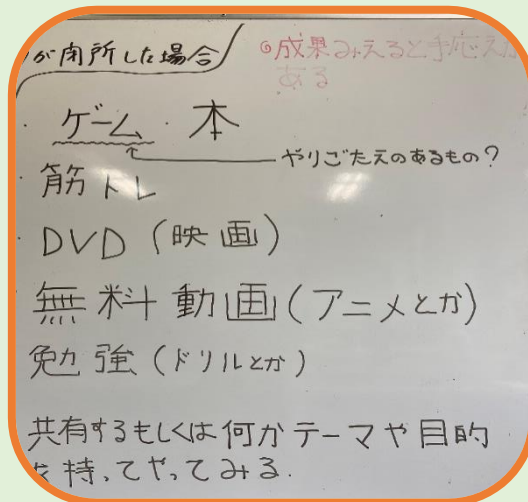 が閉所した場合
◎成果みえると手応えが
ある
・ゲーム ・本
やりごたえのあるもの?
・筋トレ
・DVD (映画)
・無料動画(アニメとか)
・勉強(ドリルとか)
共有するもしくは何かテーマや目的
を持ってやってみる.